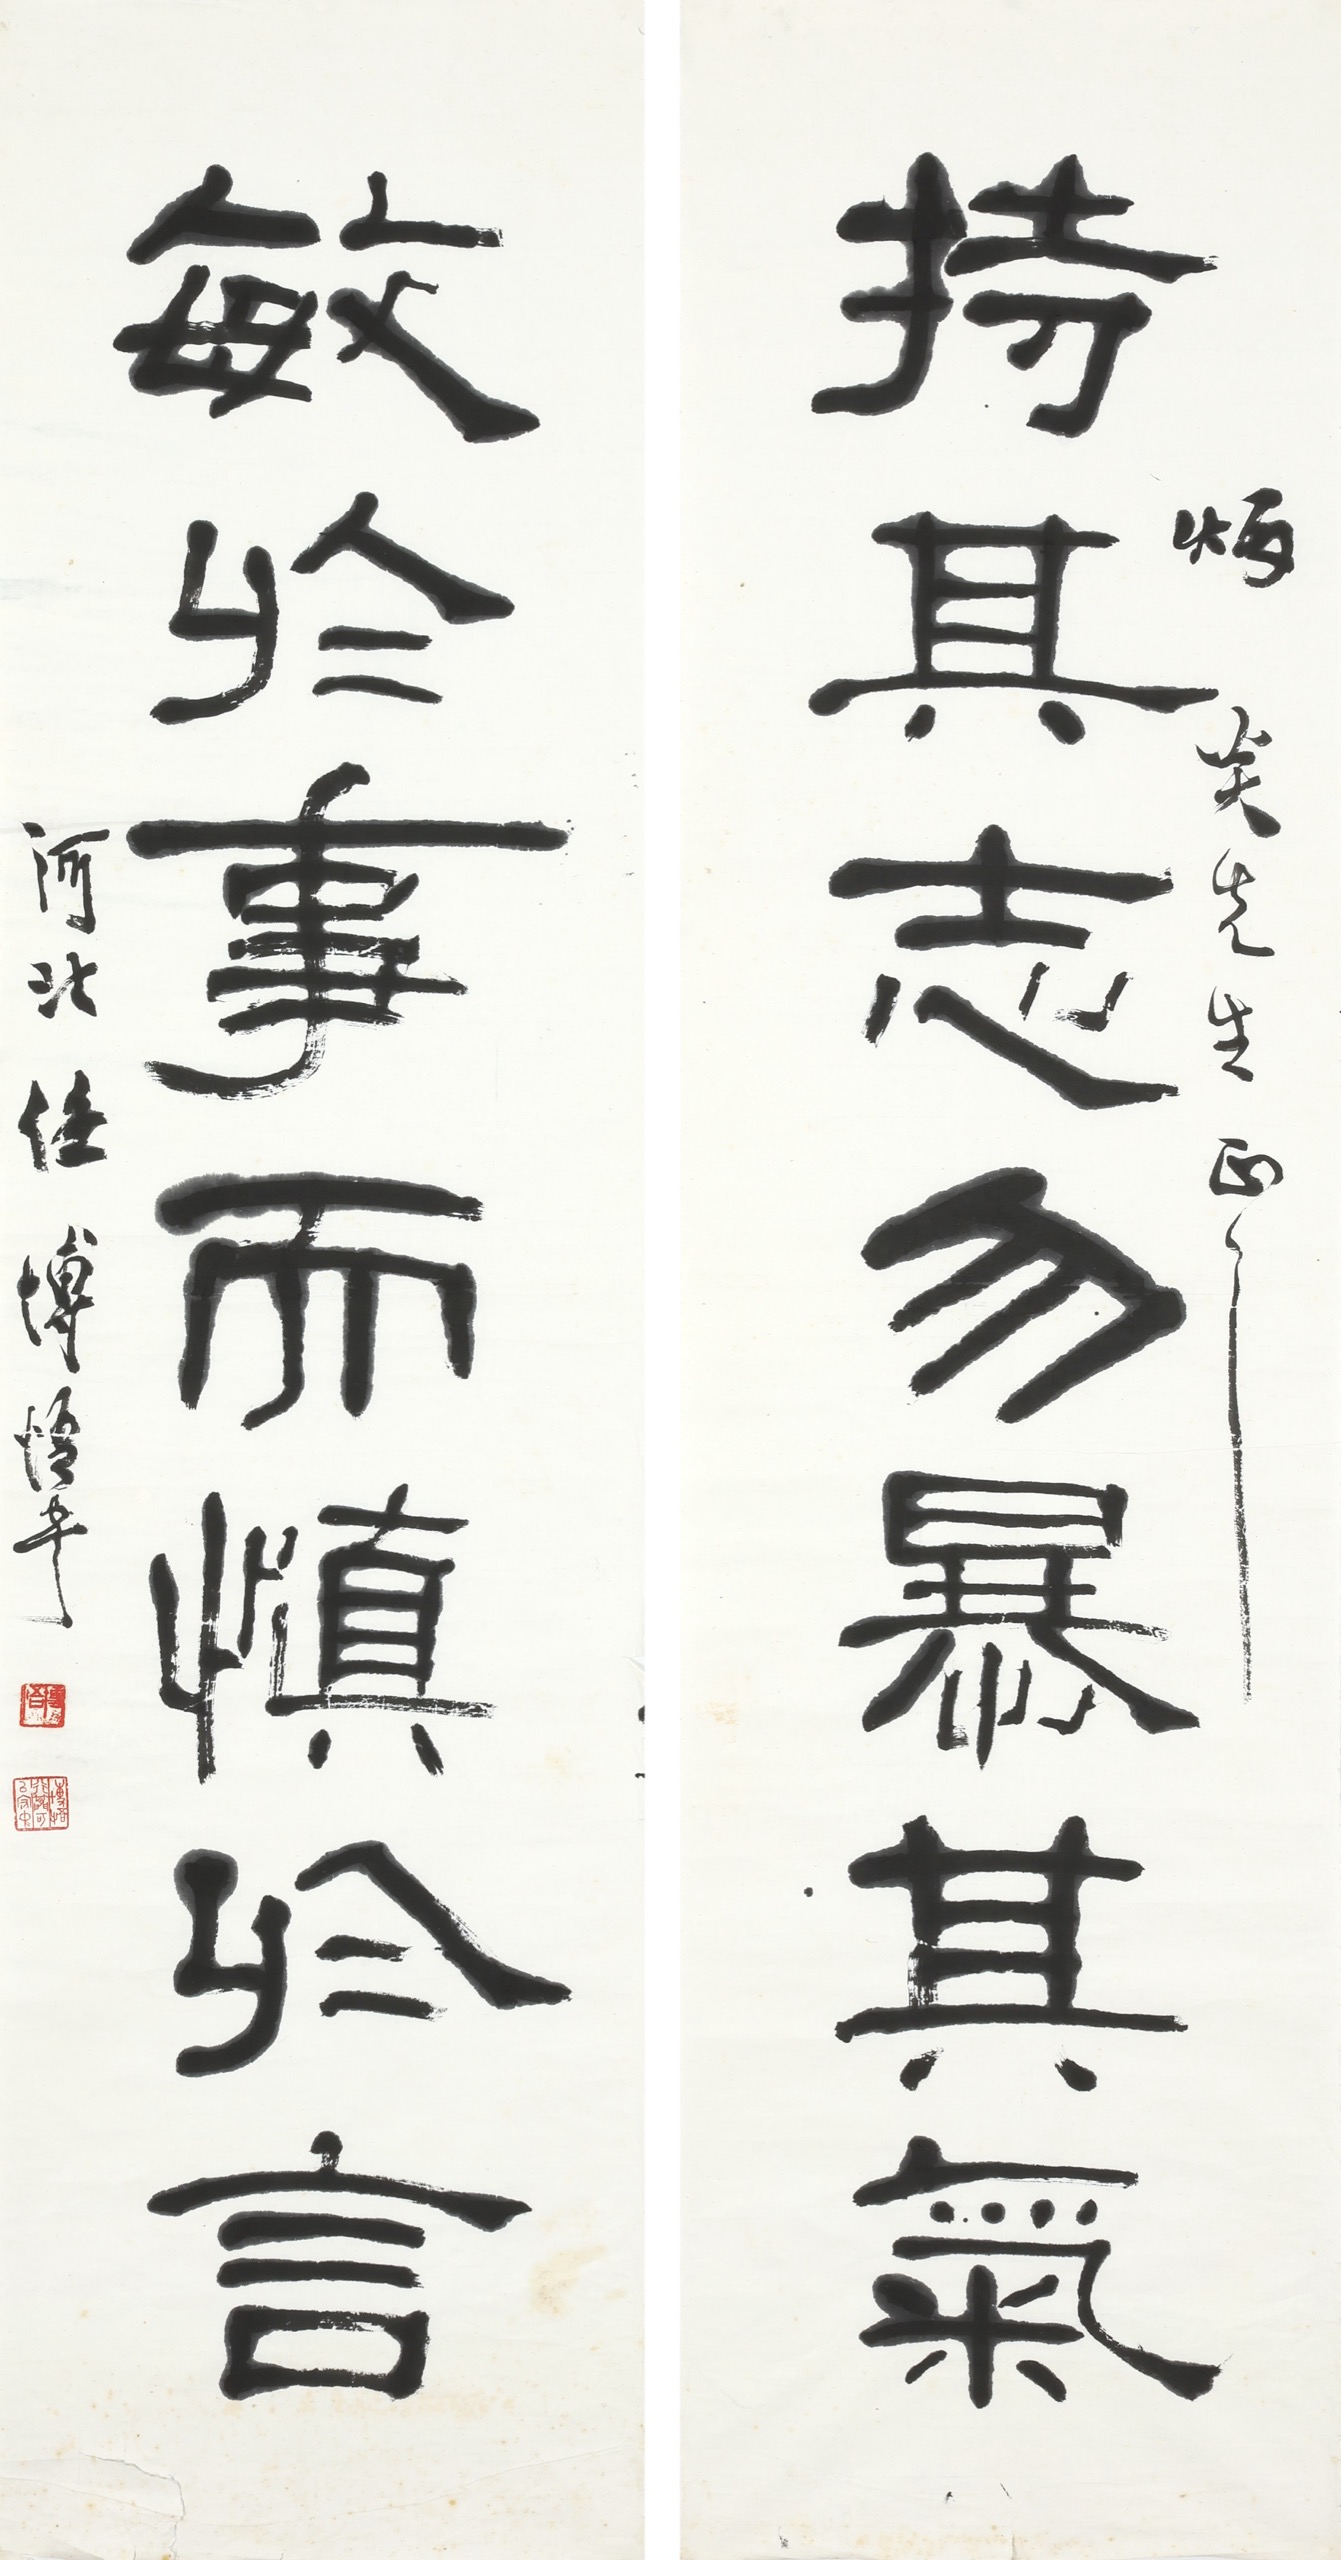 持其志勿暴其氣
炎先生正之
敏於事而慎於言
河北任博悟